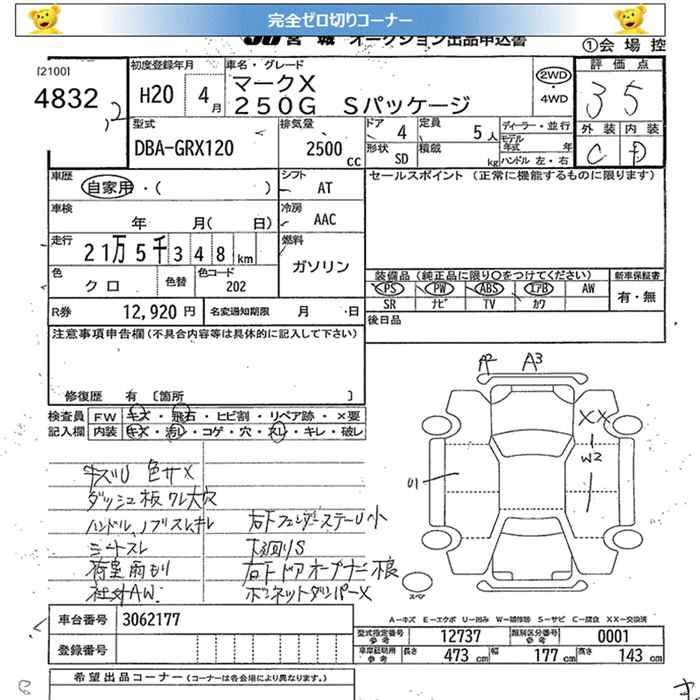 完全ゼロ切りコーナー
JU宮城 オークション出品申込書
①会場控
[2100]
4832
初度登録年月 車名・グレード
H20 4月
マークX
250G Sパッケージ
2WD
・4WD
評価点
3 5
外装 内装
C D
型式 排気量 ドア 4 定員 5人 ディーラー・並行
DBA-GRX120 2500cc 形状 SD 積載 kg モデル年式 年
ハンドル 左・右
車歴 自家用・( ) シフト AT
セールスポイント (正常に機能するものに限ります)
車検 年 月( 日) 冷房 AAC
走行 21万5千348km 燃料 ガソリン
色 クロ 色替 色コード 202
装備品(純正品に限り○をつけてください) 新車保証書
PS PW ABS エアB AW 有・無
SR ナビ TV カワ
R券 12,920円 名変通知期限 月 日
後日品
注意事項申告欄(不具合内容等は具体的に記入して下さい)
修復歴 有 [箇所 ]
検査員 FW キズ・飛石・ヒビ割・リペア跡・×要
記入欄 内装 キズ・汚レ・コゲ・穴・スレ・キレ・破レ
A2 A3
XX
W2
U1
キズU 色サX
ダッシュ板 ワレ大穴
ハンドル、ノブスレキレ
シートスレ
荷室雨もり
社外AW
右下フェンダーステーU小
下廻りS
右下ドアオープナー根
ボンネットダンパーX
スペア
A-キズ E-エクボ U-凹み W-補修跡 S-サビ C-腐食 XX-交換済
車台番号 3062177
型式指定番号 参考 12737 類別区分番号 参考 0001
登録番号
車庫証明用 参考 長さ 473cm 幅 177cm 高さ 143cm
希望出品コーナー (コーナーは各会場により異なります。)